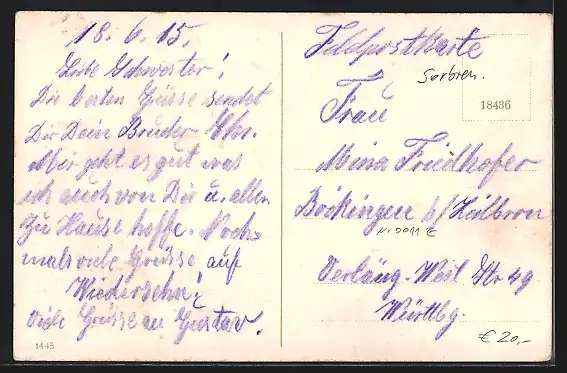 18. 6. 15.
Liebe Schwester!
Die besten Grüsse sendet
Dir Dein Bruder Chr.
Mir geht es gut was
ich auch von Dir u. allen
zu Hause hoffe. Noch-
mals viele Grüsse auf
Wiedersehn!
Viele Grüsse an Gustav.
1445
Feldpostkarte
Serbien.
18436
Frau
Mina Friedhofer
Böckingen b/Heilbron
Verläng. Weil Str 49
Württbg.
€ 20,-